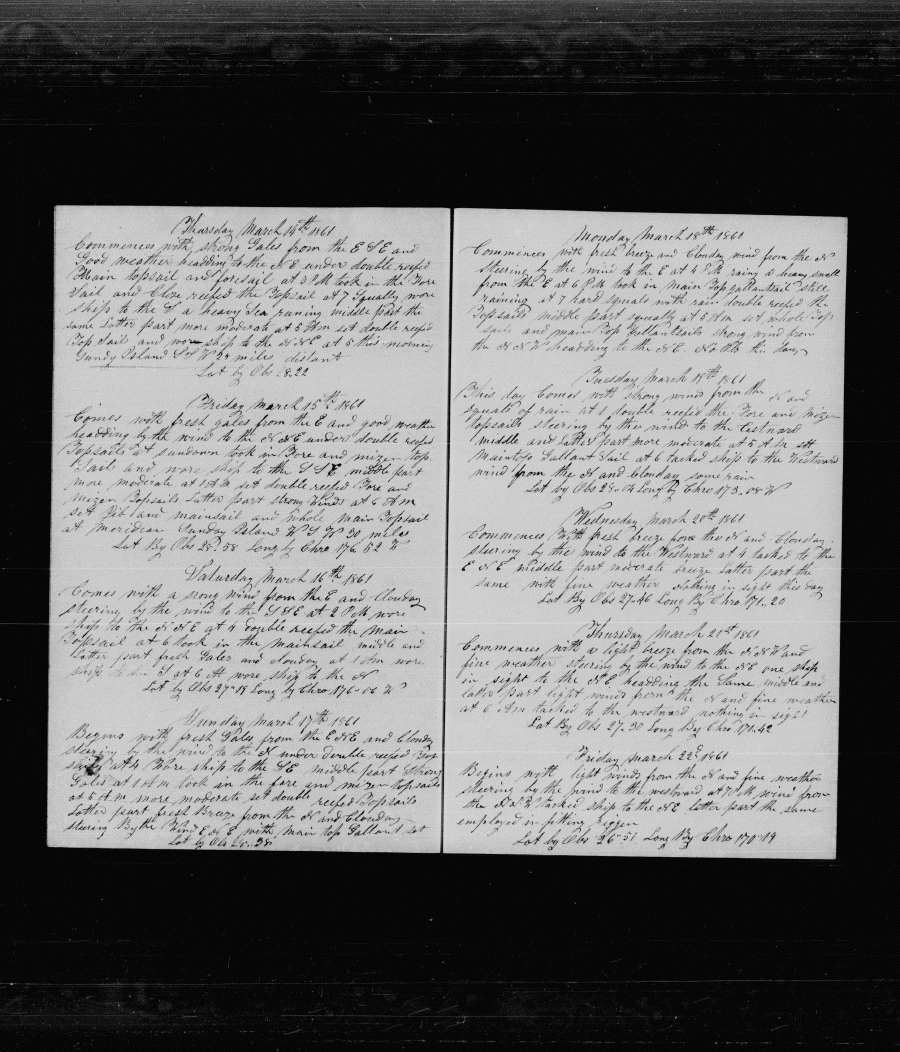 Thursday March 14th 1861
Commences with strong Gales from the E S E and
Good weather headding to the N E under double reefed
Main topsail and foresail at 3 P M took in the Fore
Sail and Close reefed the Topsail at 7 Squally wore
ship to the S a heavy Sea runing middle part the
same Latter part more moderate at 5 A m set double reefed
Top Sail and wore ship to the N N E at 5 this morning
Sunday Island S S W 24 miles distant
Lat by Obs 28.22
Friday March 15th 1861
Comes with fresh gales from the E and good weather
headding by the wind to the N N E under double reefed
Topsails at sundown took in Fore and mizen top
Sails and wore ship to the S S E middle part
more moderate at 1 A M set double reefed Fore and
mizen Topsails Latter part strong Winds at 6 A m
set Jib and mainsail and whole main Topsail
at meredian Sunday Island W S W 30 miles
Lat By Obs 28.58 Long by Chro 176.52 W
Saturday March 16th 1861
Comes with a srong wind from the E and Clouday
steering by the wind to the S S E at 2 P M wore
ship to the N N E at 4 double reefed the main
Topsail at 6 took in the mainsail middle and
Latter part fresh Gales and Clouday at 1 Am wore
ship to the S at 6 A wore ship to the N
Lat by Obs 27-19 Long by Chro 176-06 W
Sunday March 17th 1861
Begins with fresh Gales from the E N E and Clouday
steering by the wind to the N under double reefed Top
sails at 4 Wore ship to the S E middle part Strong
Gales at 1 A m took in the fore and mizen topsails
at 5 A m more moderate set double reefed Topsails
Latter part fresh Breeze from the N and Clouday
steering By the Wind E N E with main top Gallant set
Lat by Obs 28-28
Monday March 18th 1861
Commences with fresh breeze and Clouday wind from the N
steering by the wind to the E at 4 P M rainy a heavy swell
from the E at 6 P M took in main Top gallantsail still
raining at 7 hard squals with rain double reefed the
Topsails middle part squally at 5 A m set whole Top
sails and main Top Gallantsails strong wind from
the N N W headding to the N E. No Obs this day
Tuesday March 19th 1861
This day Comes with strong wind from the N and
squals of rain at 1 double reefed the Fore and mizen
topsails steering by the wind to the Eastward
middle and latter part more moderate at 5 A m set
Maintop Gallant Sail at 6 tacked ship to the Westward
wind from the N and Clouday some rain
Lat by Obs 28.04 Long by Chro 173.08 W
Wednesday March 20th 1861
Commences With fresh breeze from the N and Clouday
steering by the wind to the Westward at 4 tacked to the
E N E middle part moderate breeze Latter part the
same with fine weather Nothing in sight this day
Lat By Obs 27.46 Long By Chro 171.20
Thursday March 21st 1861
Commences with a light breeze from the N N W and
fine weather steering by the wind to the N E one ship
in sight to the N E headding the Same middle and
latter part light winds from the N and fine weather
at 6 A m tacked to the westward nothing in sight
Lat By Obs 27.30 Long By Chro 170.42
Friday March 22d 1861
Begins with light winds from the N and fine weather
steering by the wind to the westward at P M wind from
the N W tacked ship to the N E latter part the same
employed in fitting
Lat by Obs 26-51 Long By Chro 170-19